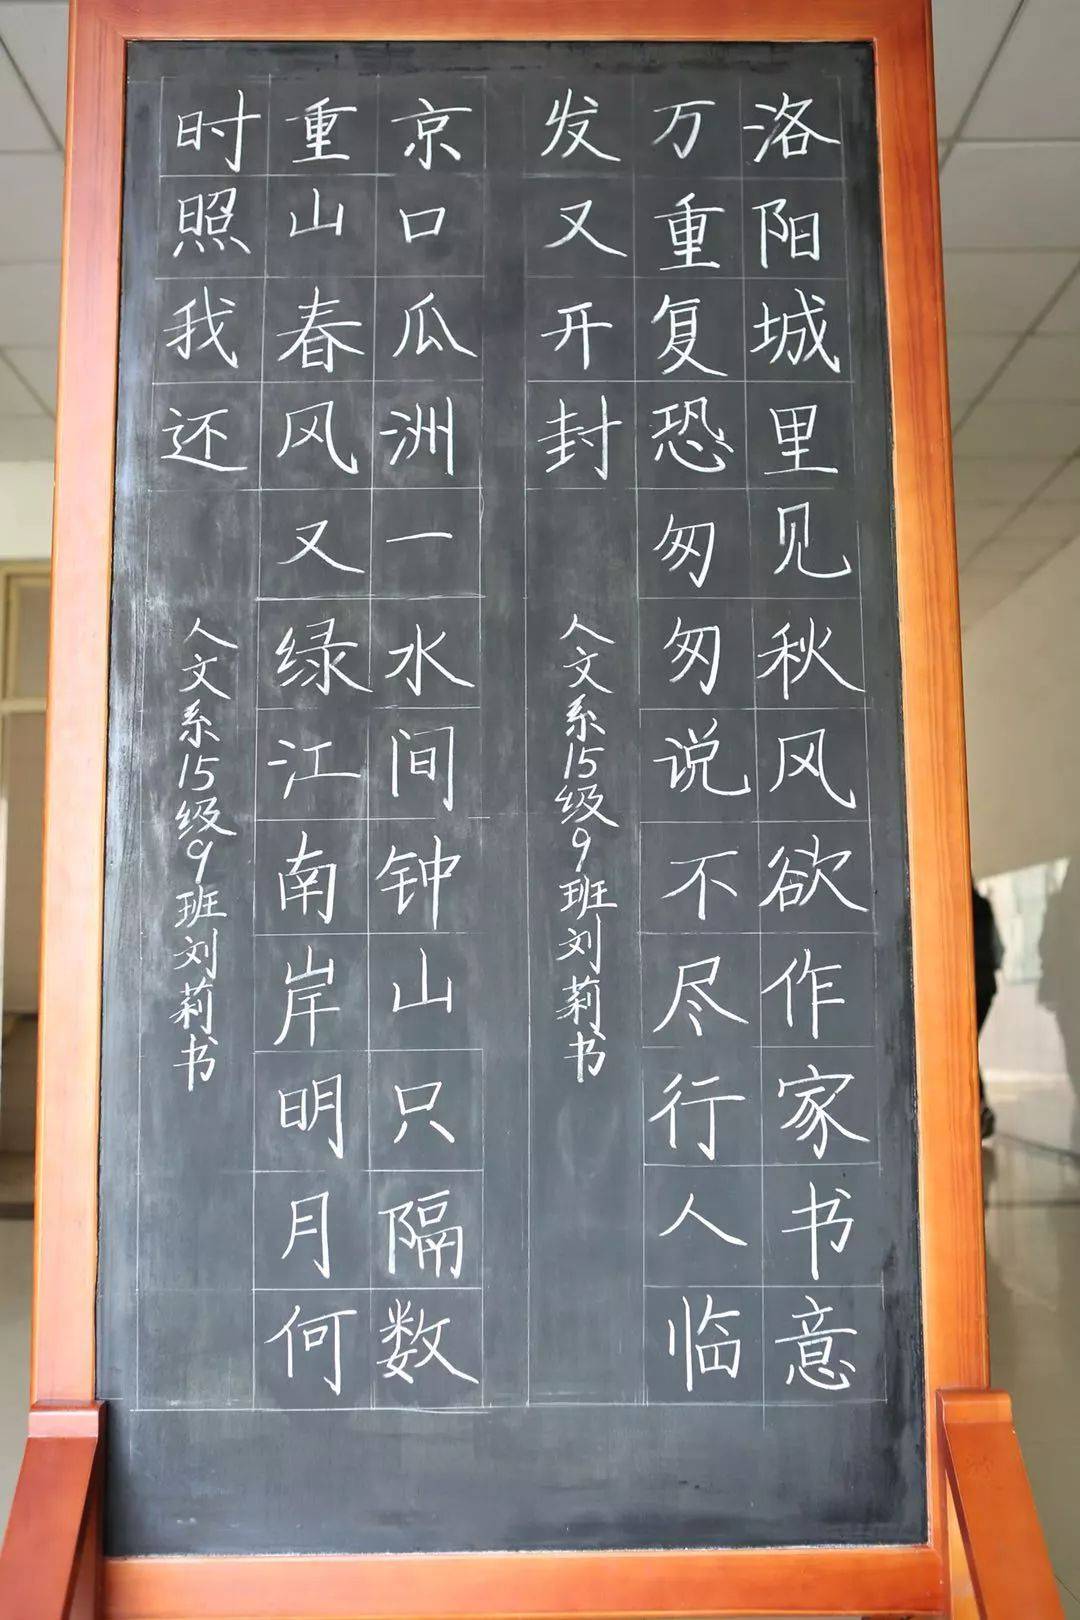 洛阳城里见秋风欲作家书意
万重复恐匆匆说不尽行人临
发又开封
人文系15级9班刘莉书
京口瓜洲一水间钟山只隔数
重山春风又绿江南岸明月何
时照我还
人文系15级9班刘莉书